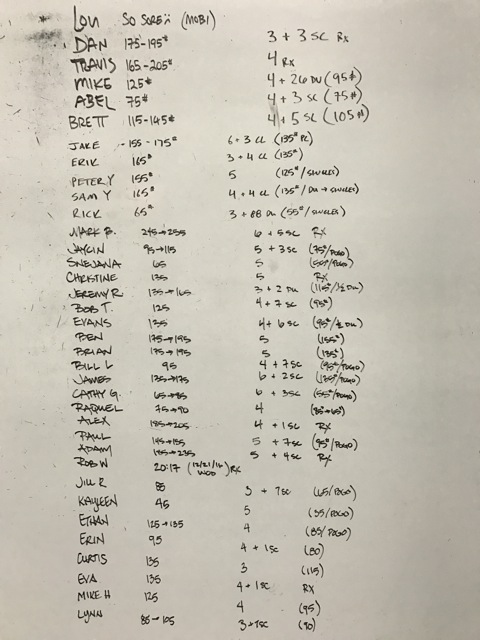 Lou SO SORE (MOBI)
DAN 175-195# 3 + 3 SC RX
TRAVIS 165-205# 4 RX
MIKE 125# 4 + 26 DU (95#)
ABEL 75# 4 + 3 SC (75#)
BRETT 115-145# 4 + 5 SC (105#)
JAKE 155-175# 6 + 3 CL (135# PC)
ERIK 165# 3 + 4 CL (135#)
PETER Y 155# 5 (125#/SINGLES)
SAM Y 165# 4 + 4 CL (135#/DU → SINGLES)
RICK 65# 3 + 88 DU (55#/SINGLES)
MARK B. 245→255 6 + 5 SC RX
JAYCIN 95→115 5 + 3 SC (75#/POGO)
SNEJANA 65 5 (55#/POGO)
CHRISTINE 135 5 RX
JEREMY R. 135→165 3 + 2 DU (115#/½ DU)
BOB T. 125 4 + 7 SC (95#)
EVANS 135 4 + 6 SC (95#/½ DU)
BEN 175→195 5 (155#)
BRIAN 175→195 5 (135#)
BILL L 95 4 + 7 SC (95#/POGO)
JAMES 135→175 6 + 2 SC (135#/POGO)
CATHY G. 65→85 6 + 3 SC (55#/POGO)
RAQUEL 75→90 4 (85→65#)
ALEX 185→205 4 + 1 SC RX
PAUL 145→155 5 + 7 SC (95#/POGO)
ADAM 185→235 5 + 4 SC RX
ROB W 20:17 (12/21/16 WOD) RX
JILL R 85 3 + 7 SC (65/POGO)
KAYLEEN 45 5 (35/POGO)
ETHAN 125→135 4 (85/POGO)
ERIN 95 4 + 1 SC (80)
CURTIS 135 3 (115)
EVA 135 4 + 1 SC RX
MIKE H 125 4 (95)
LYNN 85→105 3 + 7 SC (90)